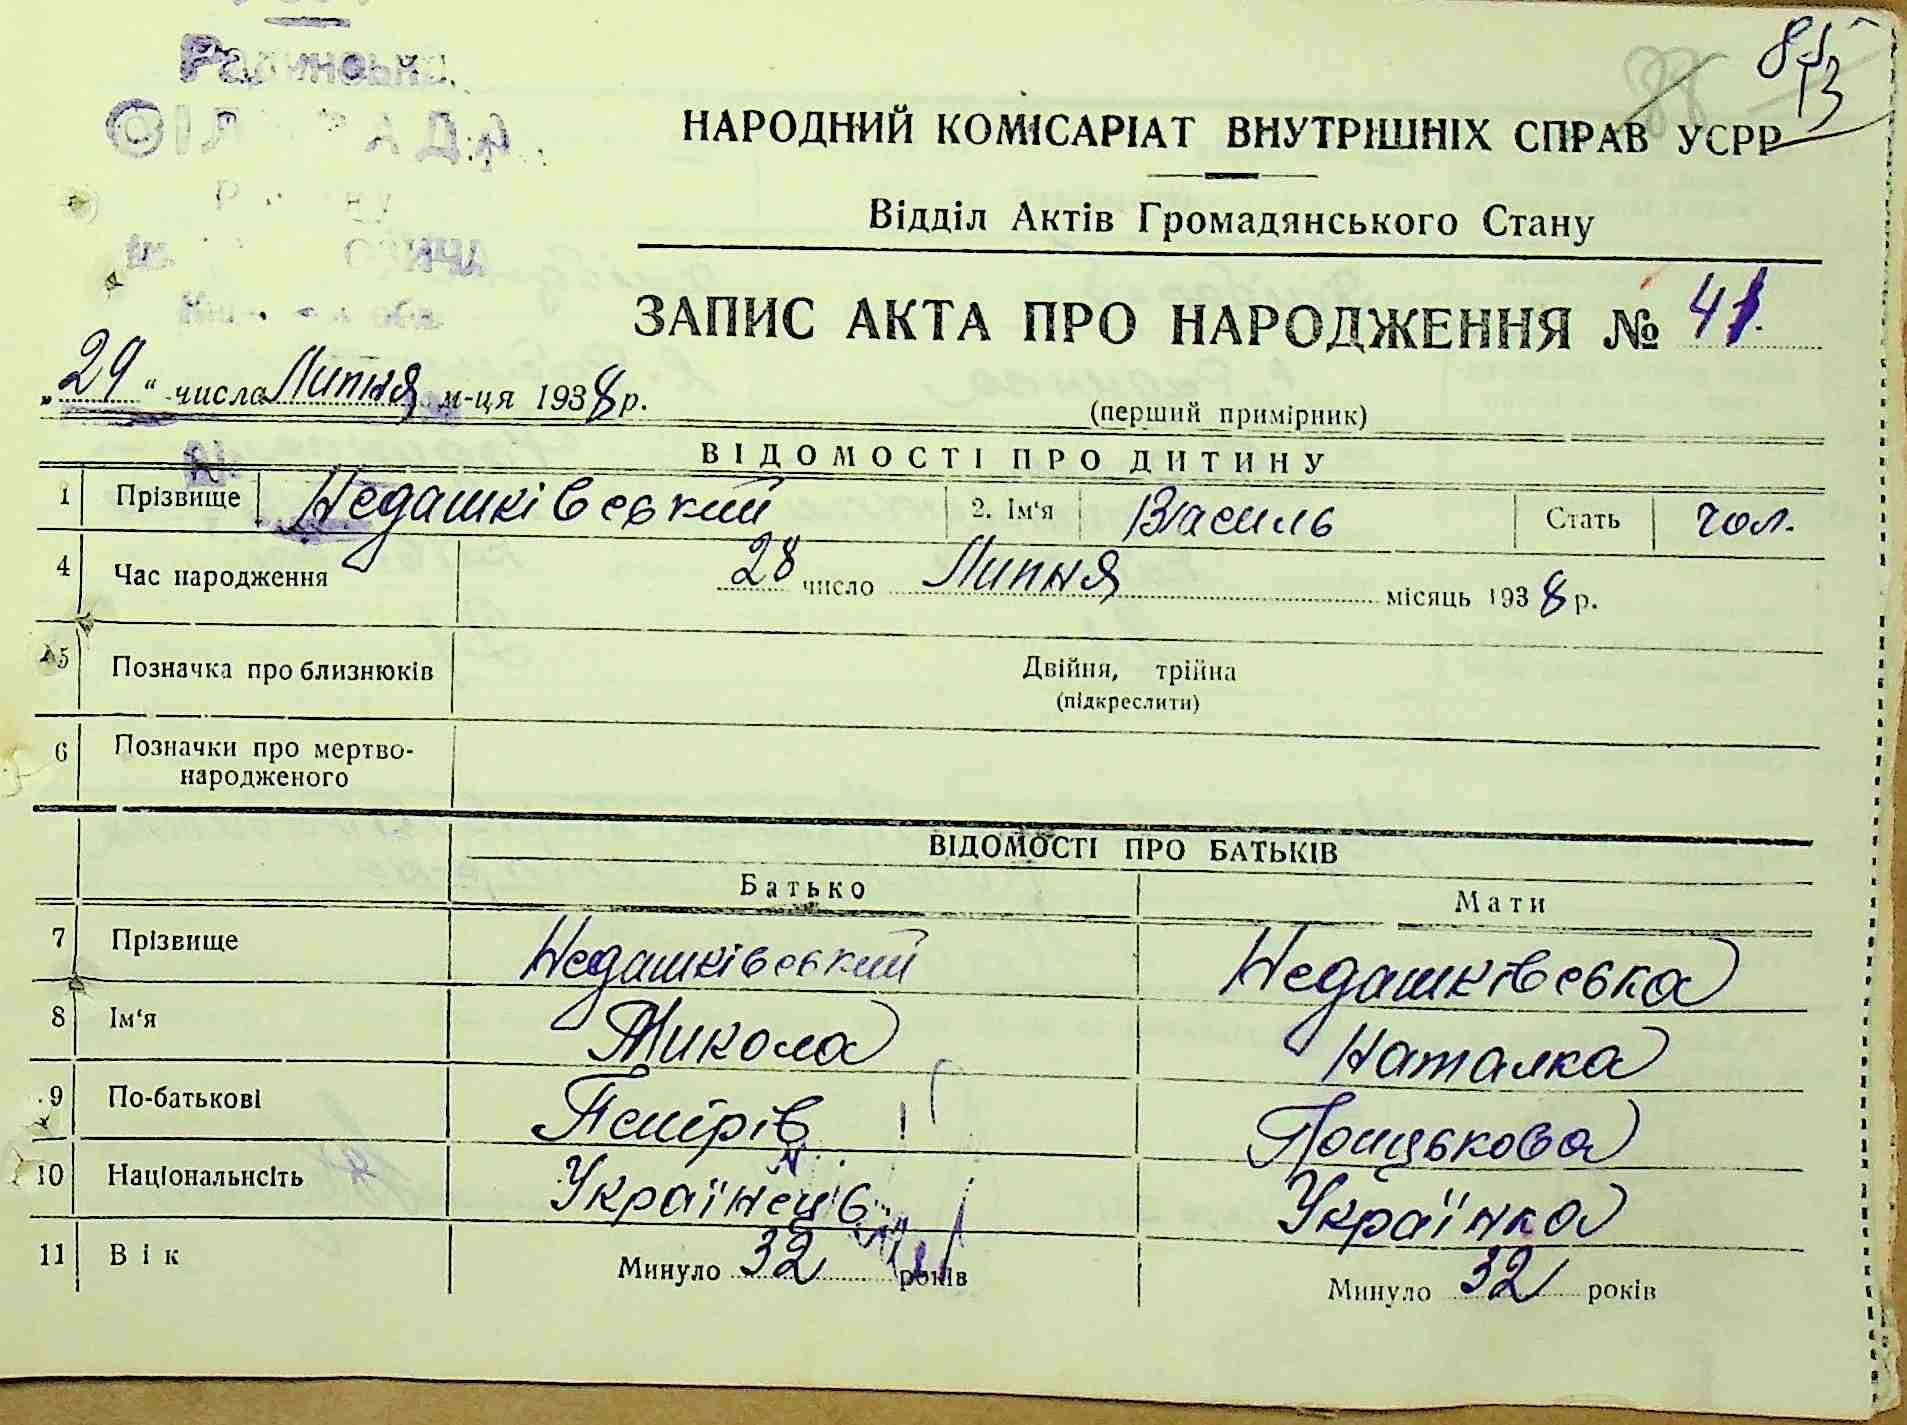 85
88
13
НАРОДНИЙ КОМІСАРІАТ ВНУТРІШНІХ СПРАВ УСРР
Відділ Актів Громадянського Стану
ЗАПИС АКТА ПРО НАРОДЖЕННЯ № 41.
„29“ числа Липня м-ця 1938 р.
(перший примірник)
ВІДОМОСТІ ПРО ДИТИНУ
1 Прізвище Недашківський 2. Ім'я Василь Стать чол.
4 Час народження 28 число Липня місяць 1938 р.
5 Позначка про близнюків Двійня, трійна
(підкреслити)
6 Позначки про мертво-
народженого
ВІДОМОСТІ ПРО БАТЬКІВ
Батько Мати
7 Прізвище Недашківський Недашківська
8 Ім'я Микола Наталка
9 По-батькові
10 Національнсіть Українець Українка
11 Вік Минуло 32 років Минуло 32 років